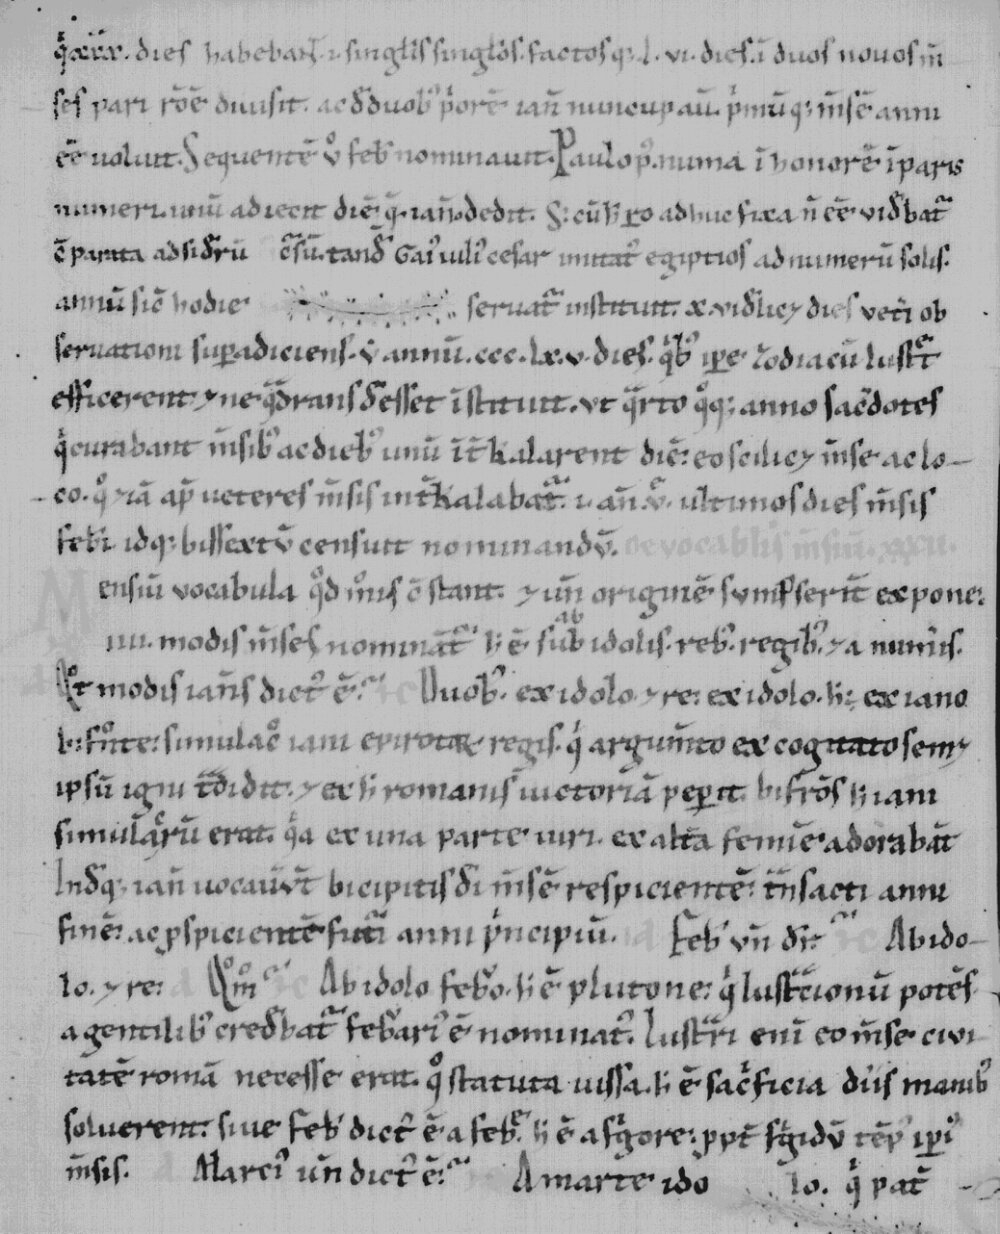 q̇ xxx. dies habebant̄. i. singlīs singlōs. factosq; l. vi. dies. ī duos novos m̄
ses pari r̄oē divisit. ac d̄ duob' p̓orē ian̄ nuncupau̅. p̓mūq; m̄sē anni
eē voluit. Sequentē v̊ feb' nominavit. Paulo p' numa ī honorē īparis
numeri. unū adiecit diē. q̄ ian̄. dedit. S; cū h̄ ro adhuc fixa n̄ eē vid̄bat̄
c̄parata ad sid̄rū c̄sū. tand̄ Gai' iuli' cesar imitat' egiptios ad numerū solis.
annū sic̄ hodie servat̄ instituit. x. vid̄licȝ dies vet̄i ob
servationi sup̱adiciens. v̄ annū. ccc. lx. v. dies. q̓b' ip̱e zodiacū lustt̄
efficerent. ⁊ ne q̄drans d̄esset īstituit. vt q̄rto q̊q; anno sac̄dotes
q̓ curabant m̄sib' ac dieb' unū īt̄kalarent diē: eo scilicȝ m̄se ac lo-
co. q̊ ⁊iā ap̄ veteres m̄sis int̄kalabat̄. i. an̄. v̄. ultimos dies m̄sis
feb'i. idq; bissextū censuit nominandū. De vocablīs m̄siū. xxxii.
Mensiū vocabula q̊d m̊is c̄stant. ⁊ un̄ originē sumpserīt expone:
iiii. modis m̄ses nominat̄ h̄ ē sub ab idolis. reb'. regib'. ⁊ a num̄is.
Q̊t modis ian̄s dict' ē. Duob'. ex idolo ⁊ re: ex idolo. h̄; ex iano
bifr̊nte: simulac̊ iani epirotar̄ regis. q̓ argum̄to excogitato semȝ
ipsū igni t̄didit. ⁊ ex h̄ romanis victoriā pep̱it. bifr̄ōs h̄ iani
simulac̄rū erat. q̓a ex una parte viri. ex alt̄a femīe adorabāt
Ind̄q; ian̄ vocav̄t bicipitis d̄i m̄sē respicientē: t̄nsacti anni
finē: ac p̱spicientē fut̄i anni p̓ncipiū. Feb' vn̄ d̄r: Ab ido-
lo. ⁊ re: Q̊m̊ Ab idolo feb'o. h̄ ē plutone: q̓ lust̄cionū potēs
a gentilib' cred̄bat̄ feb̄ari' ē nominat'. Lust̄ri enī eo m̄se civi
tatē romā necesse erat. q̊ statuta iussa. h̄ ē sac̓ficia diis manib'
solverent. sive feb' dict' ē a feb̄e h̄ ē a f̓gore: ppt̄ f̓gidū tēp' ip̱i'
m̄sis. Marci' un̄ dict' ē: A marte ido lo. q̓ pat̄